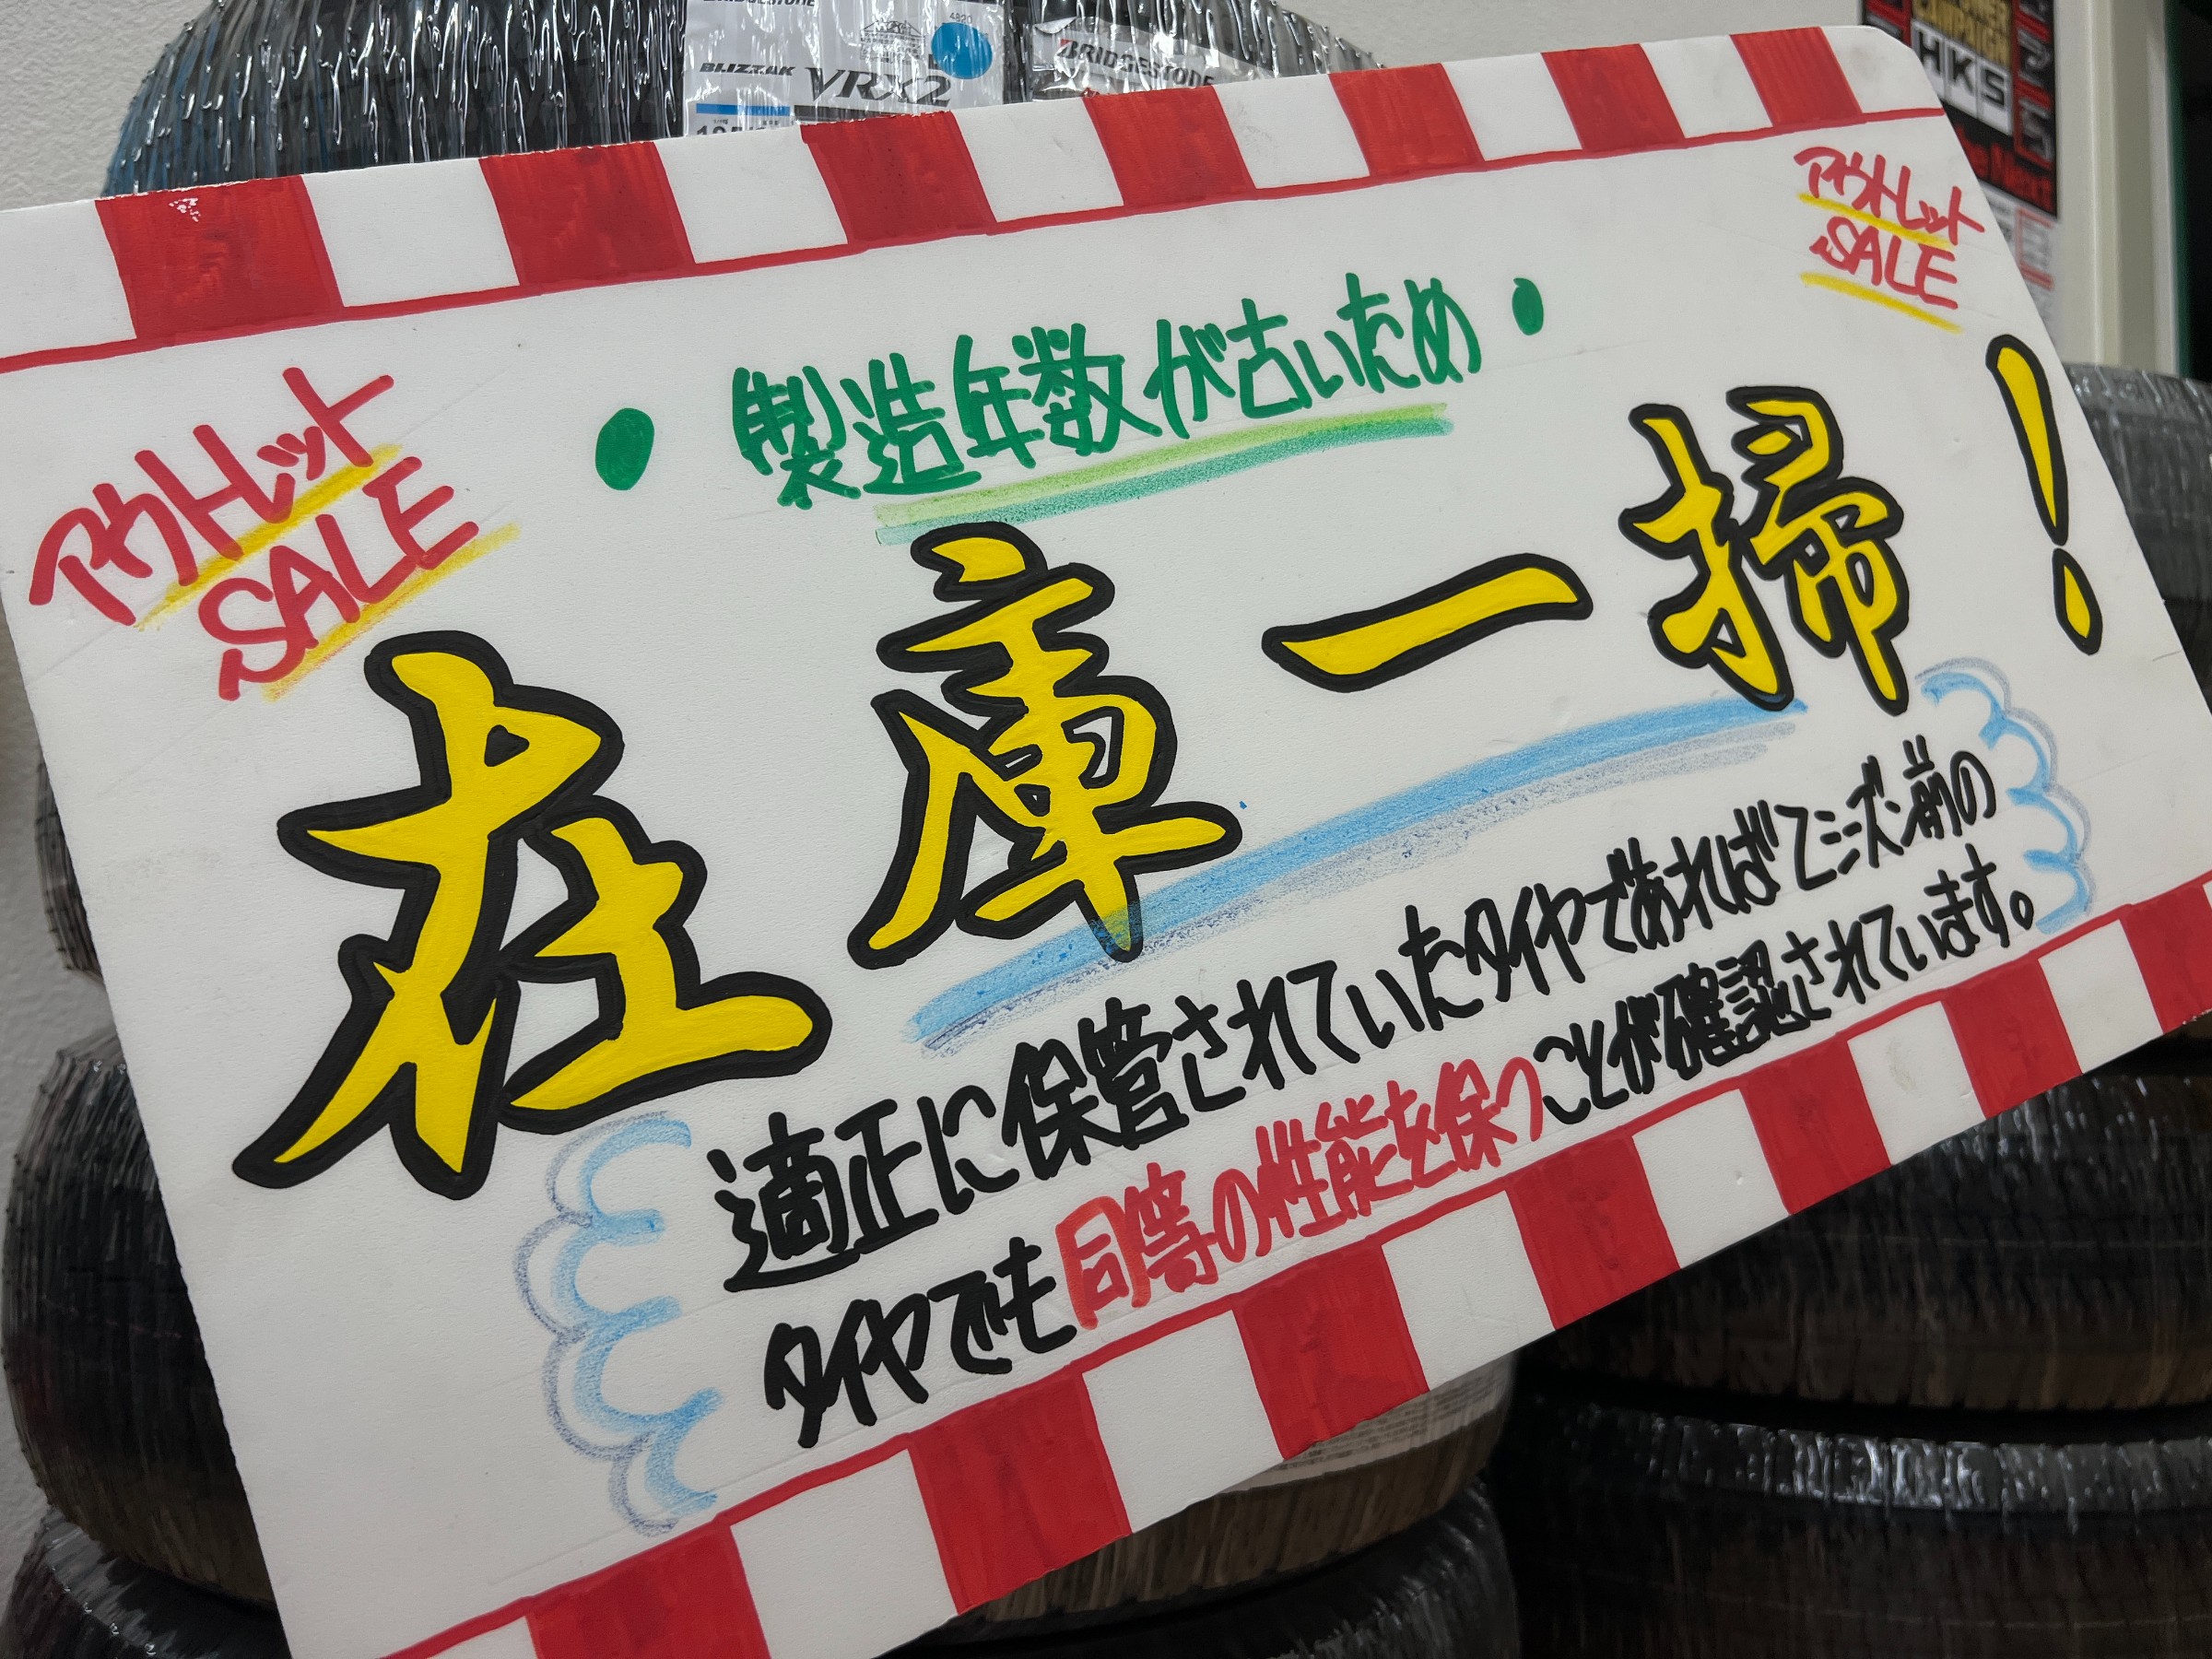 BRIDGESTONE
4820
BLIZZAK VRX2
BRIDGESTONE
CAMPAIGN
HKS
アウトレット
SALE
アウトレット
SALE
・製造年数が古いため・
在庫一掃!
適正に保管されていたタイヤであれば2シーズン前の
タイヤでも同等の性能を保つことが確認されています。